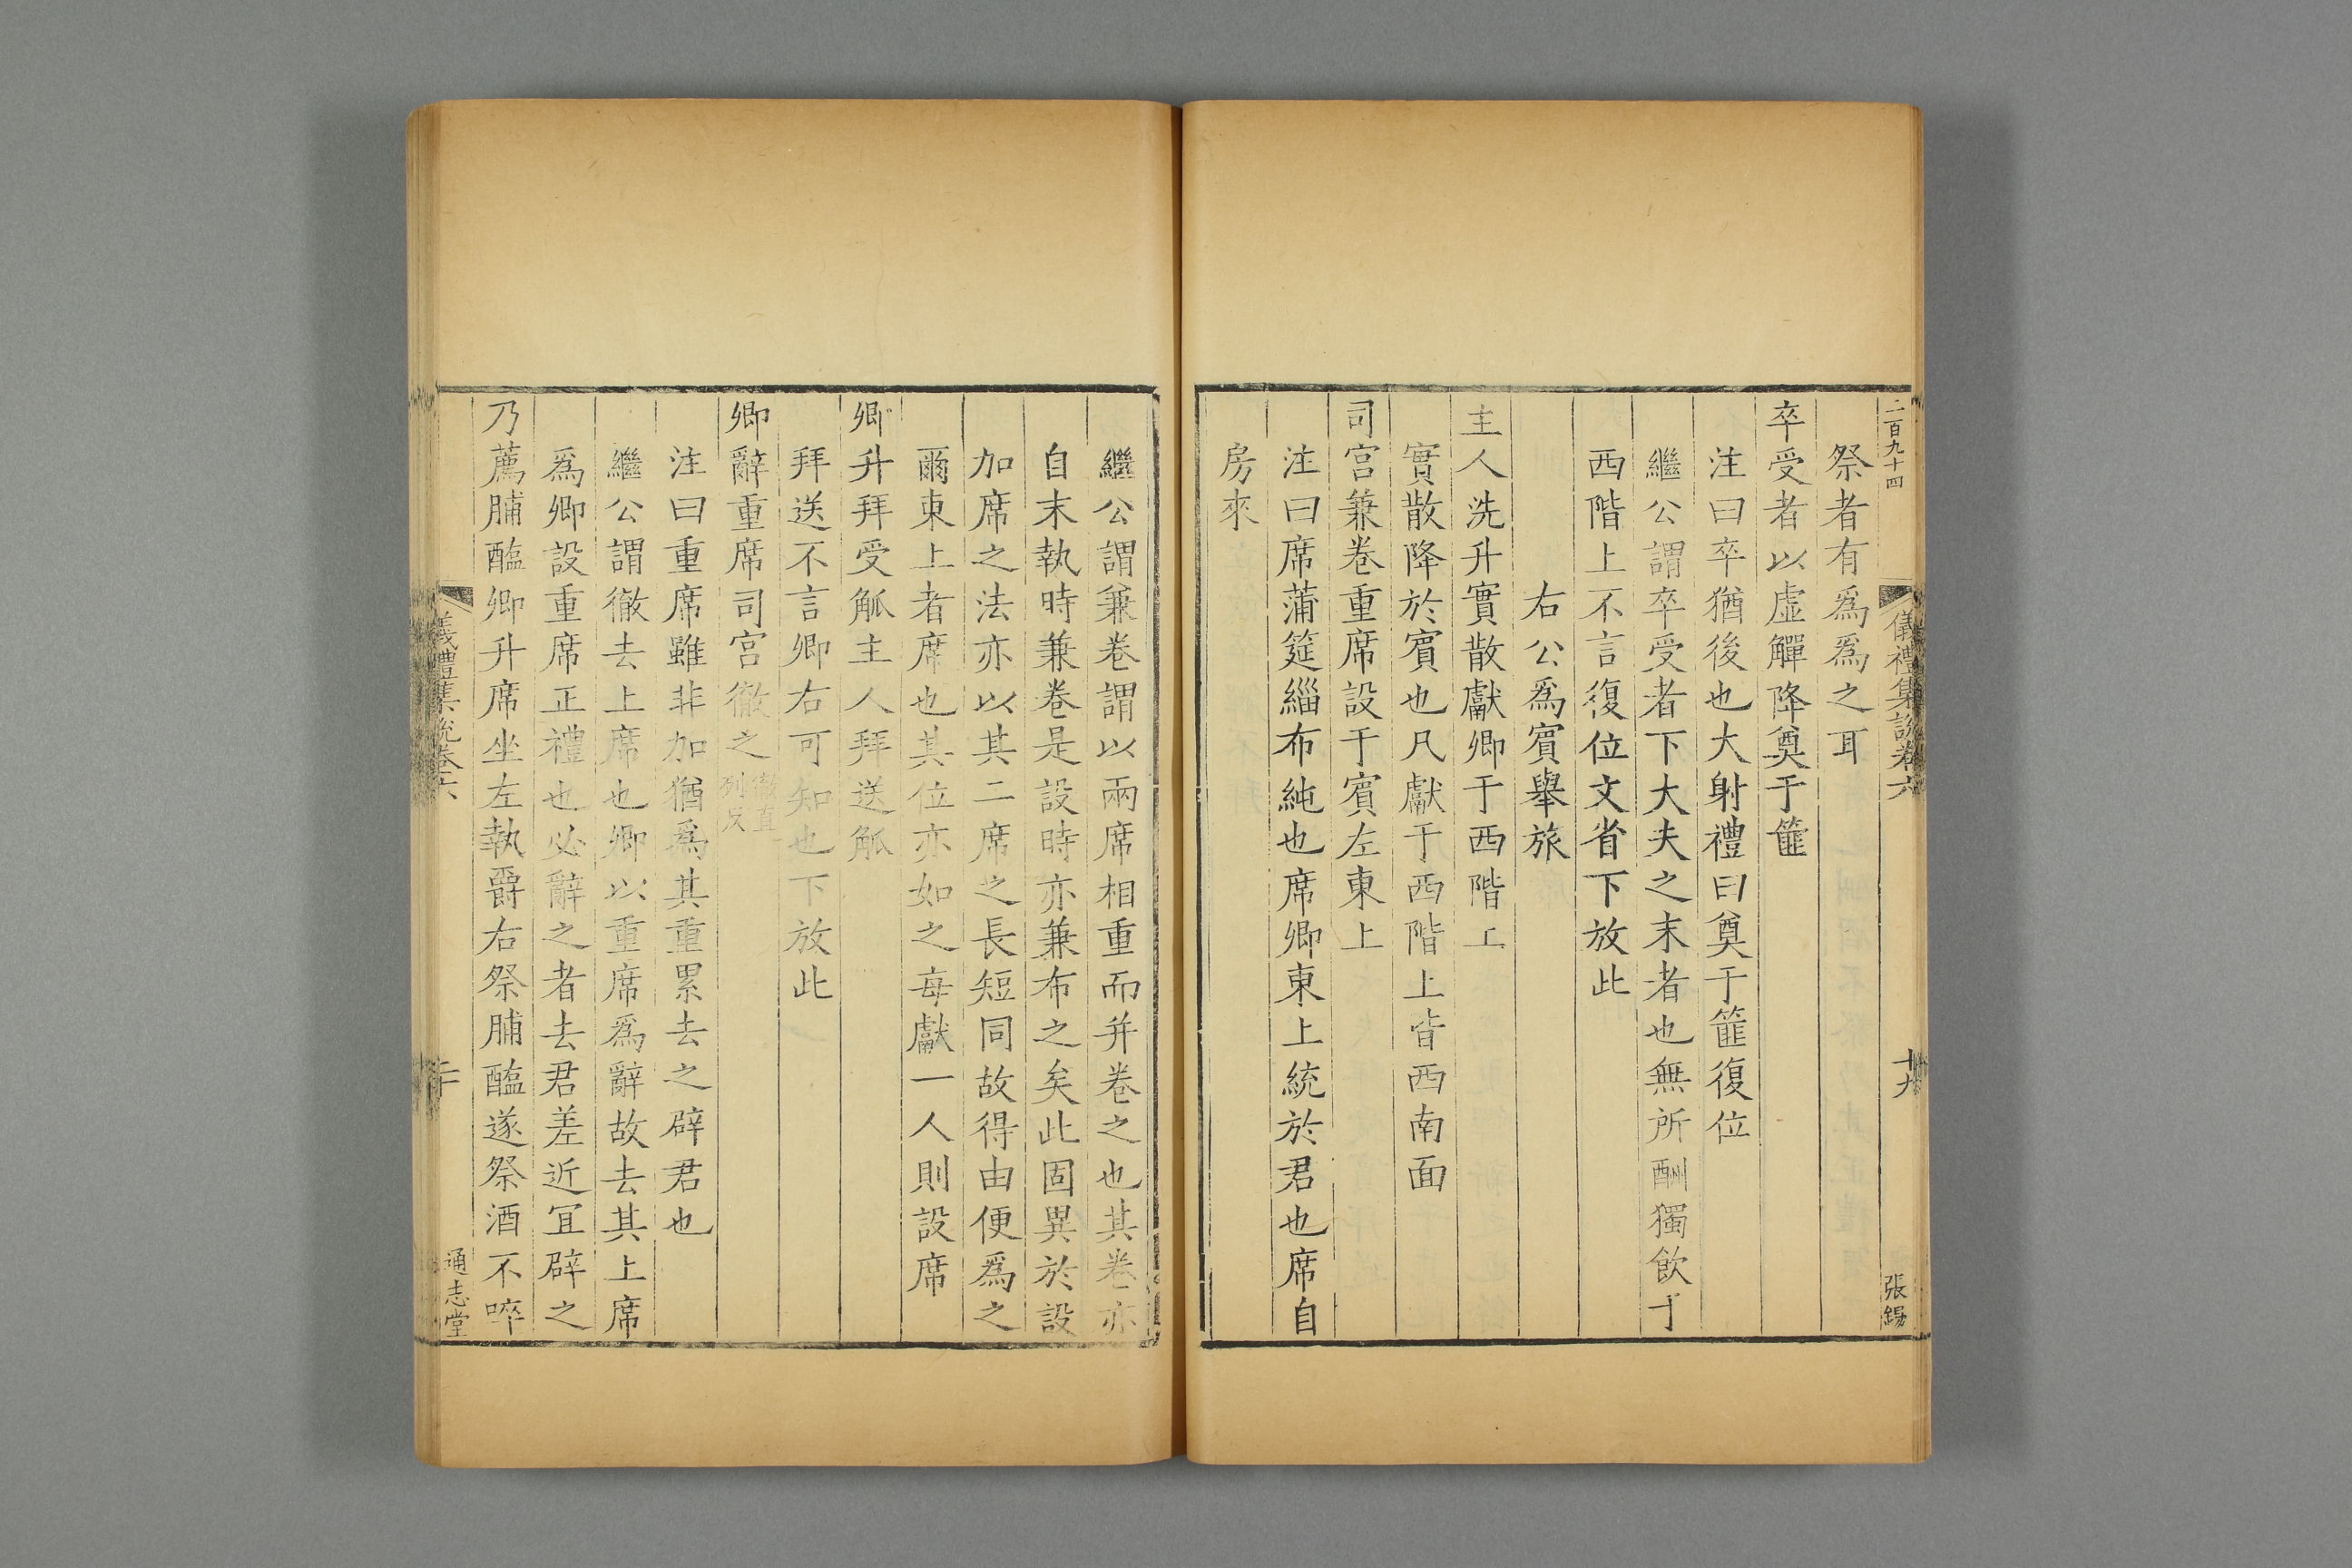 二百九十四
儀禮集說卷六
十九
張錫
祭者有爲爲之耳
卒受者以虛觶降奠于篚
注曰卒猶後也大射禮曰奠于篚復位
繼公謂卒受者下大夫之末者也無所酬獨飲于
西階上不言復位文省下放此
右公爲賓舉旅
主人洗升實散獻卿于西階上
實散降於賓也凡獻于西階上皆西南面
司宮兼卷重席設于賓左東上
注曰席蒲筵緇布純也席卿東上統於君也席自
房來
繼公謂兼卷謂以兩席相重而并卷之也其卷亦
自末執時兼卷是設時亦兼布之矣此固異於設
加席之法亦以其二席之長短同故得由便爲之
爾東上者席也其位亦如之每獻一人則設席
卿升拜受觚主人拜送觚
拜送不言卿右可知也下放此
卿辭重席司宮徹之徹直列反
注曰重席雖非加猶爲其重累去之辟君也
繼公謂徹去上席也卿以重席爲辭故去其上席
爲卿設重席正禮也必辭之者去君差近宜辟之
乃薦脯醢卿升席坐左執爵右祭脯醢遂祭酒不啐
儀禮集說卷六
二十
通志堂